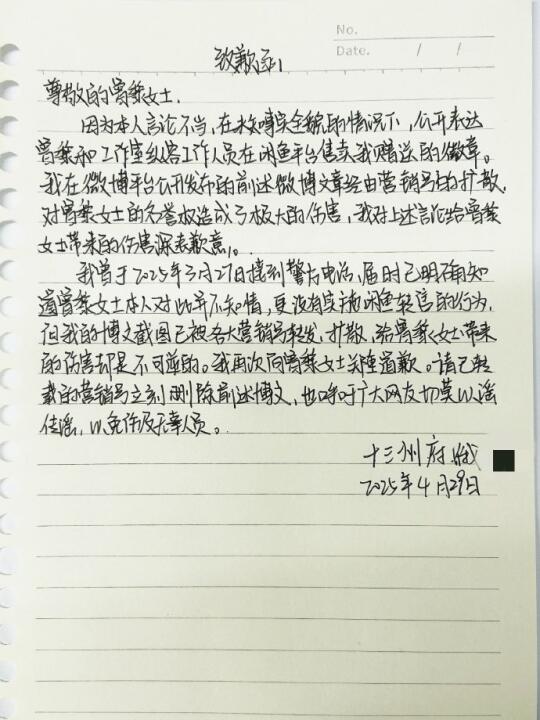 No.
Date. / /
致歉函
尊敬的曾黎女士.
因为本人言论不当,在未得实全貌的情况下,公开表达
曾黎和工作室纵容工作人员在闲鱼平台售卖我赠送的徽章。
我在微博平台公开发布的前述微博文章经由营销号的扩散,
对曾黎女士的名誉权造成了极大的伤害,我对上述言论给曾黎
女士带来的伤害深表歉意。
我曾于2025年3月27日接到警方电话,届时已明确知
道曾黎女士本人对此并不知情,更没有实施闲鱼转售的行为,
但我的博文截图已被各大营销号转发、扩散,给曾黎女士带来
的伤害却是不可逆的。我再次向曾黎女士郑重道歉。请已转
载的营销号立刻删除前述博文,也呼吁广大网友切莫以谣
传谣,以免伤及无辜人员。
十三州府
2025年4月29日